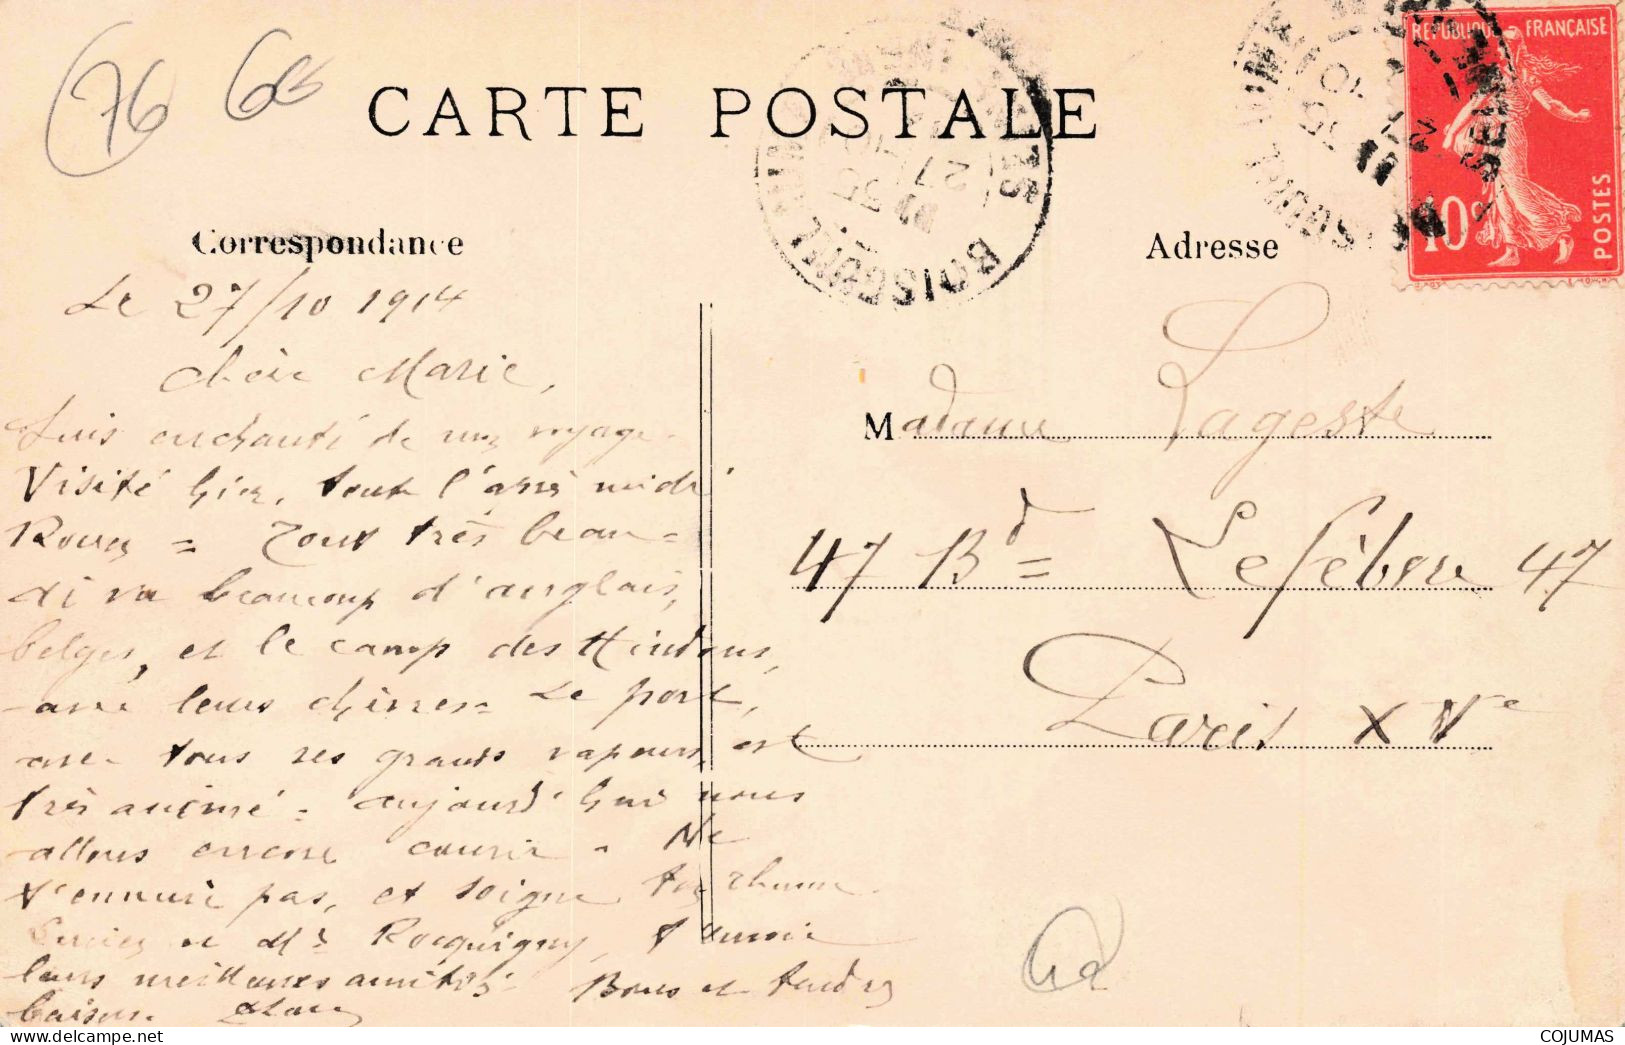 76
CARTE POSTALE
RÉPUBLIQUE FRANÇAISE
10c
POSTES
BOISGUILLAUME
27
Correspondance
Adresse
Le 27/10 1914
Chère Marie,
Suis enchanté de mon voyage.
Visité hier, tout l'après midi
Rouen = Tout très beau -
ai vu beaucoup d'anglais,
belges, et le camp des Hindous,
avec leurs chèvres = Le port,
avec tous ses grands vapeurs, est
très animé = aujourd'hui nous
allons encore courir - Ne
t'ennuie pas, et soigne ton rhume.
et Mr Rocquigny, t'envoie
leurs meilleures amitiés. Bons et tendres
baisers.
Madame Lageste
47 Bd = Lefèbvre 47
Paris XVe
COJUMAS